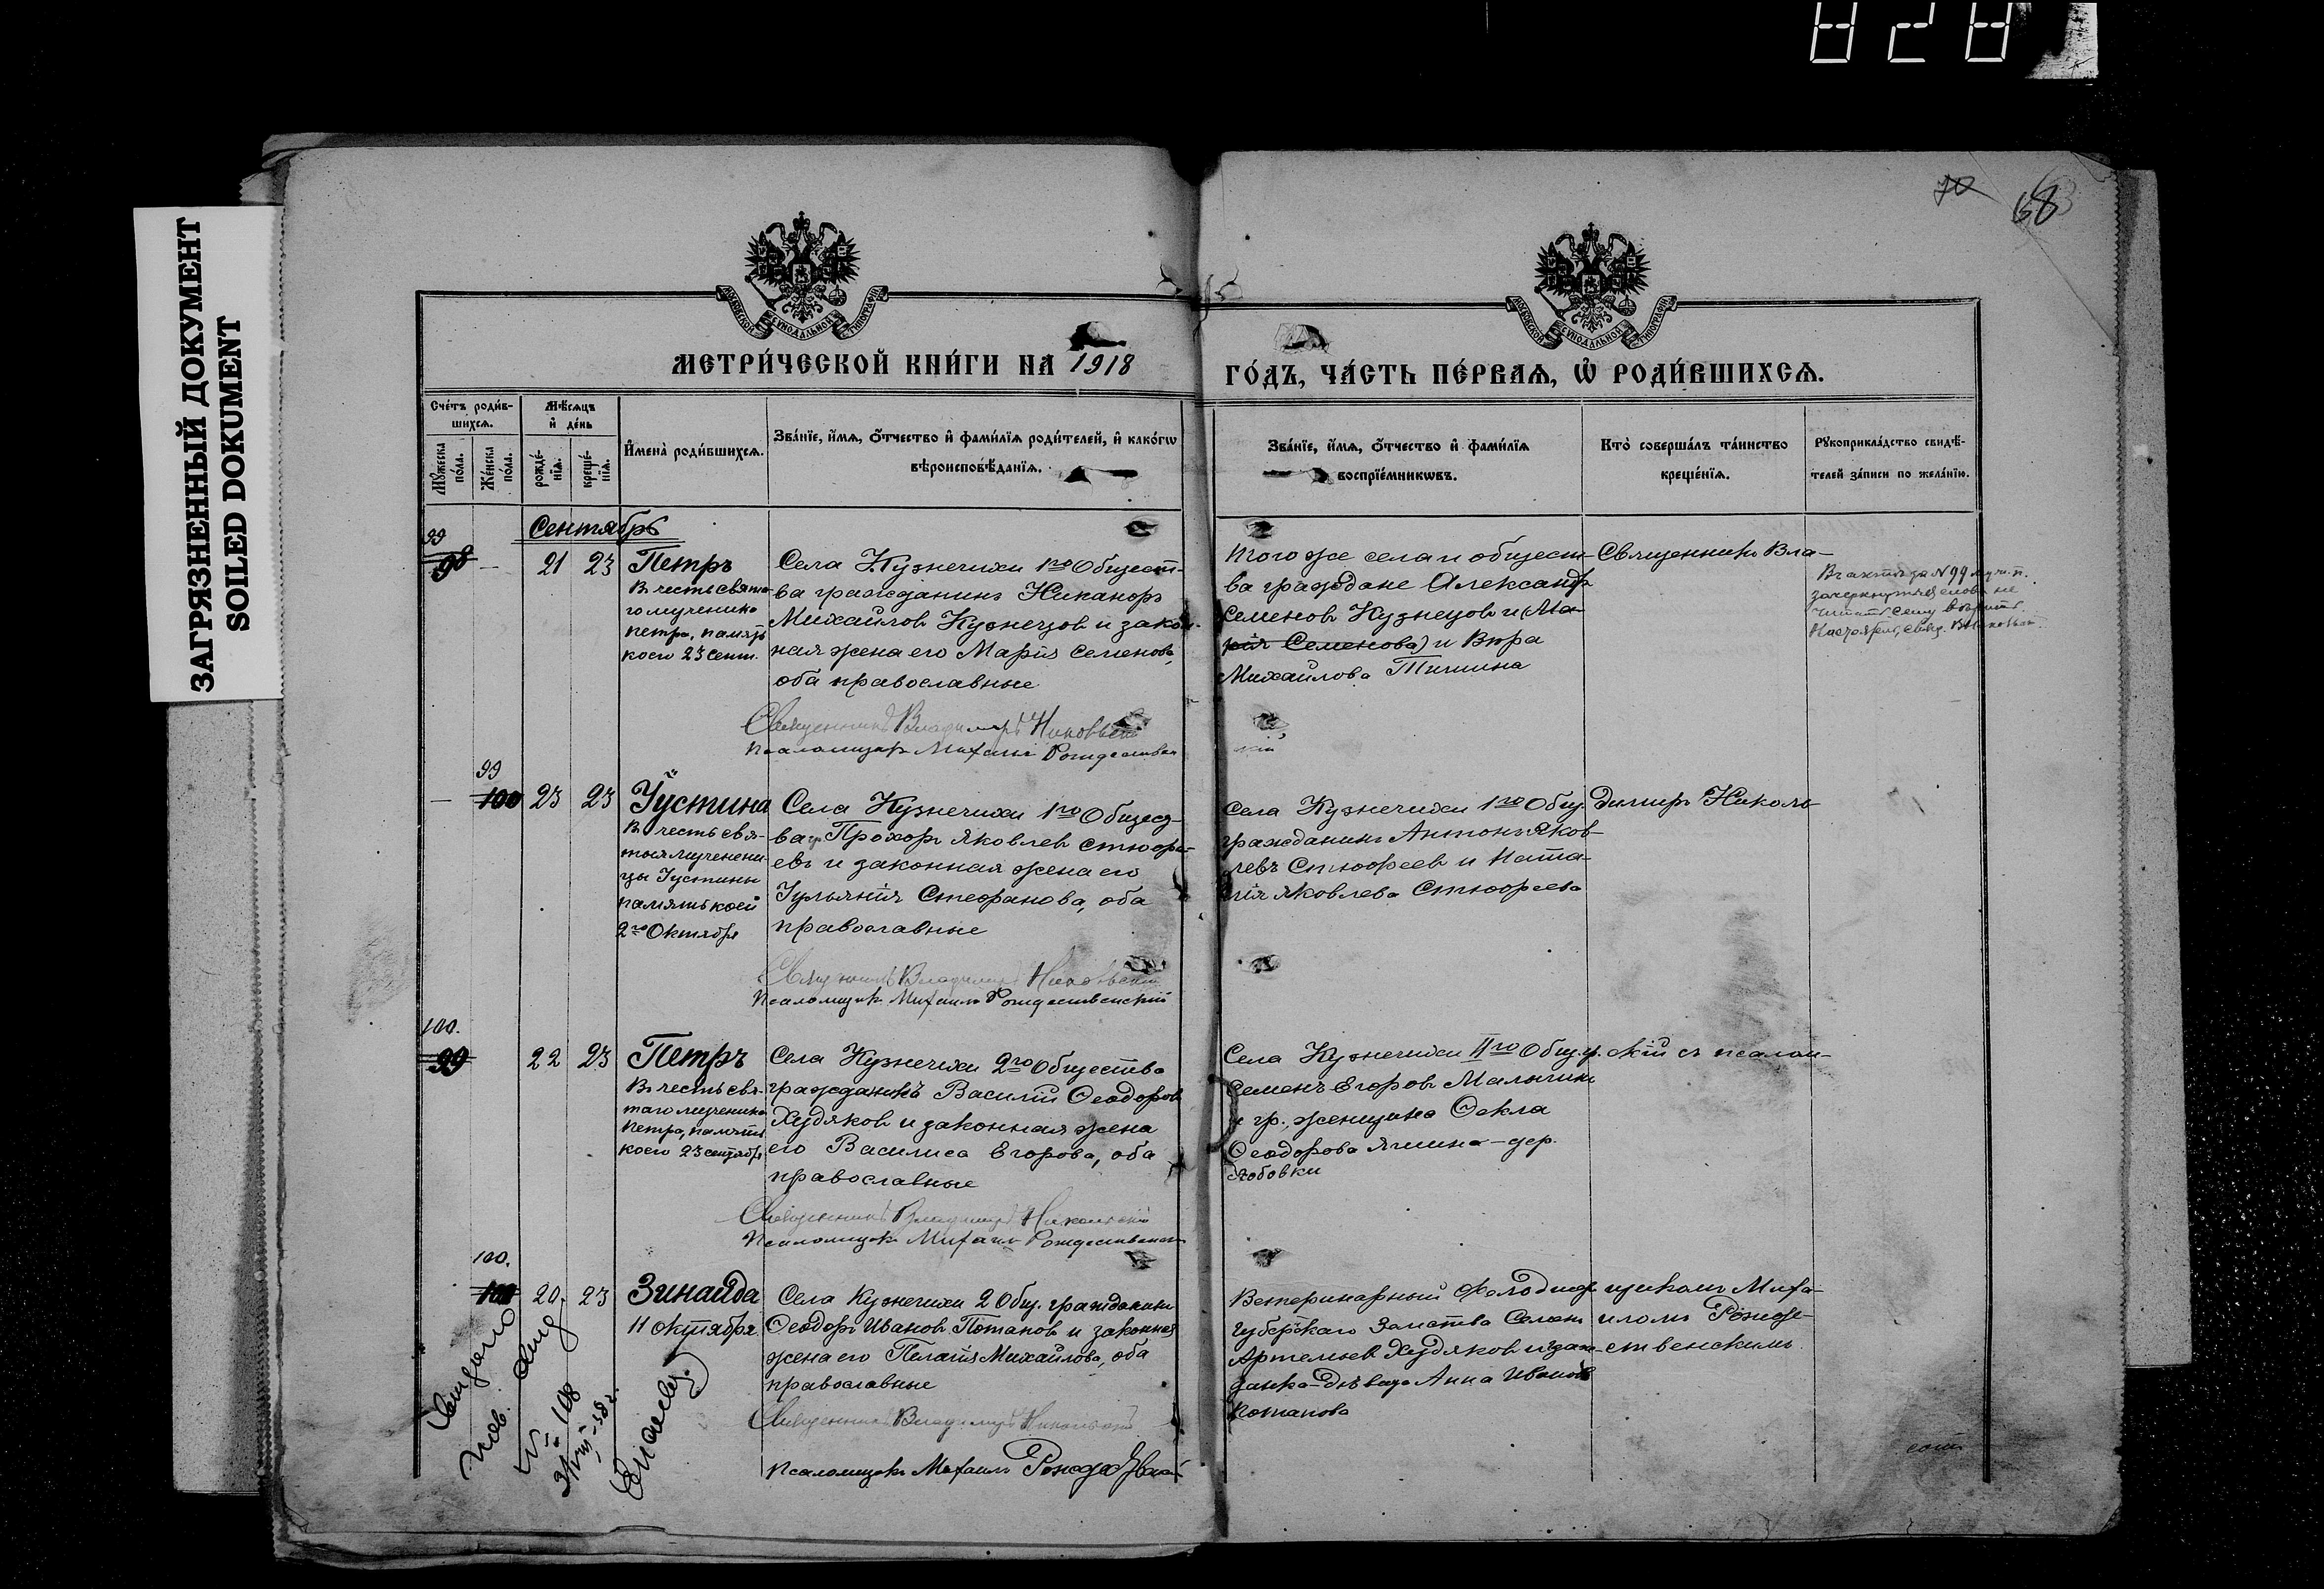 828
ЗАГРЯЗНЕННЫЙ ДОКУМЕНТ
SOILED DOKUMENT
70
68
МОСКОВСКОЙ СѴНОДАЛЬНОЙ ТИПОГРАФІИ
МОСКОВСКОЙ СѴНОДАЛЬНОЙ ТИПОГРАФІИ
МЕТРИ́ЧЕСКОЙ КНИ́ГИ НА 1918
ГО́ДЪ, ЧА́СТЬ ПЕ́РВАѦ, Ѡ҆ РОДИ́ВШИХСѦ.
Сче́тъ роди́в-
шихсѧ.
Мꙋ́жеска по́ла.
Же́нска по́ла.
Мѣ́сѧцъ
и҆ де́нь
рожде́-
нїѧ.
креще́-
нїѧ.
И҆мена̀ роди́вшихсѧ.
Зва́нїе, и҆́мѧ, ѻ҆́тчество и҆ фами́лїѧ роди́телей, и҆ како́гѡ
вѣроисповѣ́данїѧ.
Зва́нїе, и҆́мѧ, ѻ҆́тчество и҆ фами́лїѧ
воспрїе́мникѡвъ.
Кто̀ соверша́лъ та́инство
креще́нїѧ.
Рꙋкоприкла́дство свидѣ́-
телей за́писи по жела́нїю.
Сентябрь
99
98 — 21 23
Петръ
Въ честь свята-
го мученика
Петра, память
коего 23 сент.
Села Кузнечихи 1го Общест-
ва гражданинъ Никаноръ
Михайлов Кузнецов и закон-
ная жена его Марія Семенова,
оба православные
Священникъ Владимиръ Никольскій
Псаломщикъ Михаилъ Рождественск
Того же села и общест-
ва граждане Александръ
Семенов Кузнецов и (Ма-
рія Семенова) и Вѣра
Михайлова Тишина
Священникъ Вла-
Въ актѣ за № 99 муж. п.
зачеркнутыя слова не
читать сему вѣрить
99
— 100 23 23
Іустина
Въ честь свя-
тыя мучени-
цы Іустины
память коей
2го Октября
Села Кузнечихи 1го Общест-
ва гр. Прохоръ Яковлев Стюфе-
евъ и законная жена его
Іульянія Стефанова, оба
православные
Священникъ Владимиръ Никольскій
Псаломщикъ Михаилъ Рождественскій
Села Кузнечихи 1го Общ.
гражданинъ Антонъ Яков-
левъ Стюфеев и Ната-
лія Яковлева Стюфеева
димиръ Николь-
100.
99 22 23
Петръ
Въ честь свя-
таго мученика
Петра, память
коего 23 сентября
Села Кузнечихи 2го Общества
гражданинъ Василій Ѳеодоров
Худяков и законная жена
его Василиса Егорова, оба
православные
Священникъ Владимиръ Никольскій
Псаломщикъ Михаилъ Рождественск
Села Кузнечихи IIго Общ. гр.
Семенъ Егоров Малыгинъ
и гр. женщина Ѳекла
Ѳеодорова Яшина — дер.
скій съ псалом-
100.
20. 23
Зинаида
11 октября
Села Кузнечихи 2 Общ. гражданинъ
Ѳеодоръ Иванов Потапов и законная
жена его Пелагія Михайлова, оба
православные
Священникъ Владимиръ Никольскій
Псаломщикъ Михаилъ Рождественскій
Ветеринарный фельдшер
губернскаго Земства
Артемьев Худяков и граж-
данка-дѣвица Анна Иванова
Потапова
щикомъ Миха-
иломъ Рожде-
ственскимъ.
№ 108